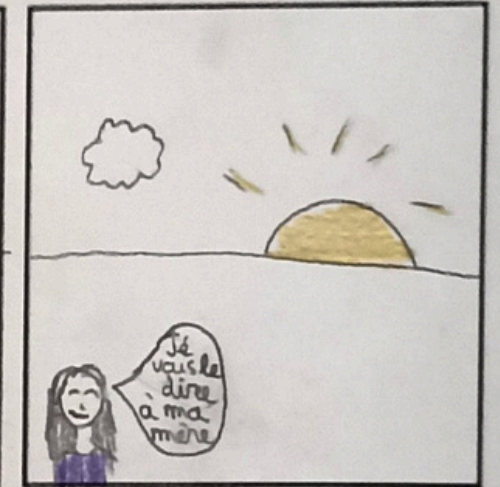 Je
vais le
dire
à ma
mère